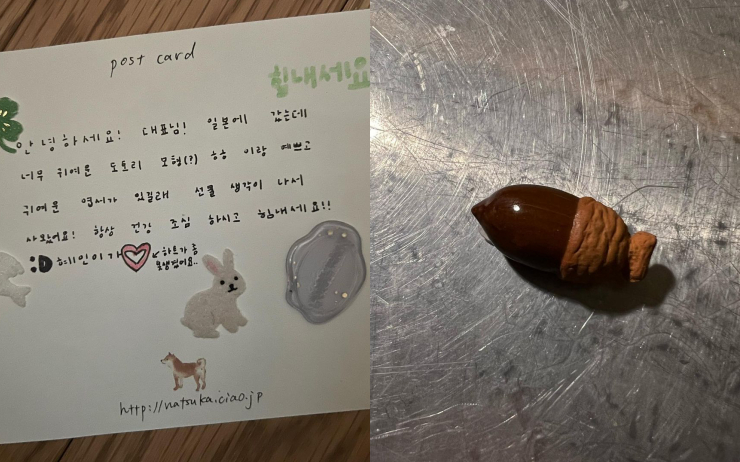 post card
힘내세요
안녕하세요! 대표님! 일본에 갔는데
너무 귀여운 도토리 모형(?) ㅎㅎ 이랑 예쁘고
귀여운 엽서가 있길래 선물 생각이 나서
사왔어요! 항상 건강 조심 하시고 힘내세요!!
혜인이가 ↙하트가 좀
못생겼어요..
http://natsuka.ciao.jp